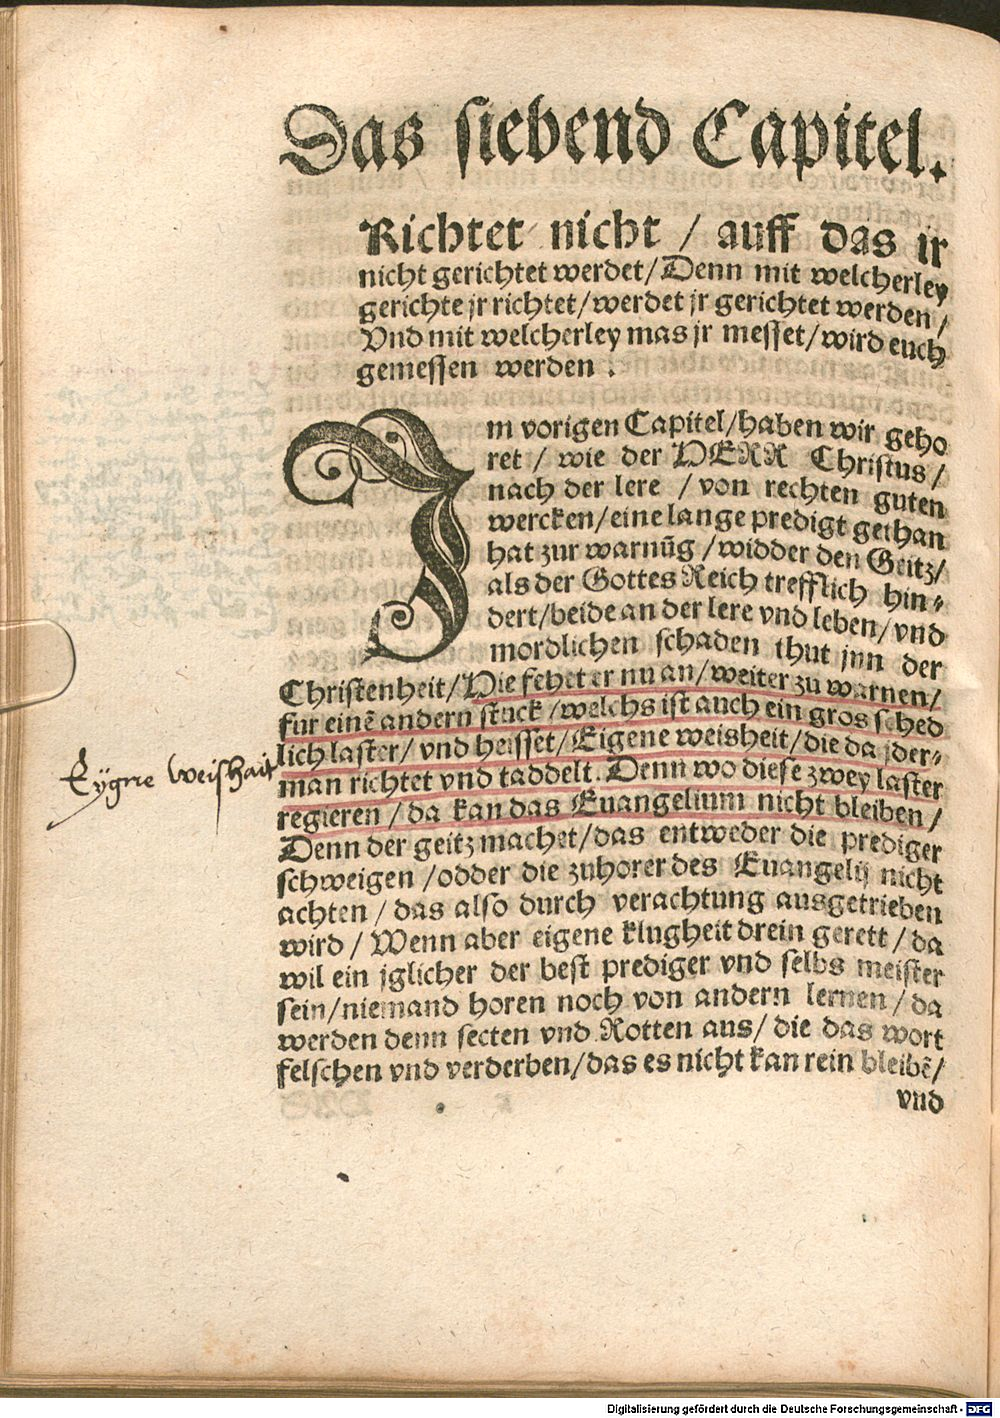 Das siebend Capitel.
Richtet nicht / auff das ir
nicht gerichtet werdet/Denn mit welcherley
gerichte jr richtet/werdet jr gerichtet werden/
Vnd mit welcherley mas jr messet/wird euch
gemessen werden .
Im vorigen Capitel/haben wir geho
ret / wie der HERR Christus/
nach der lere / von rechten guten
wercken/eine lange predigt gethan
hat zur warnũg /widder den Geitz/
als der Gottes Reich trefflich hin⸗
dert/beide an der lere vnd leben/vnd
mordlichen schaden thut jnn der
Christenheit/Hie fehet er nu an/weiter zu warnen/
fur einẽ andern stuck /welchs ist auch ein gros sched
lich laster/ vnd heisset/Eigene weisheit/die da jder⸗
Eygne Weishait
man richtet vnd taddelt. Denn wo diese zwey laster
regieren /da kan das Euangelium nicht bleiben/
Denn der geitz machet/das entweder die prediger
schweigen /odder die zuhorer des Euangelij nicht
achten / das also durch verachtung ausgetrieben
wird / Wenn aber eigene klugheit drein gerett / da
wil ein jglicher der best prediger vnd selbs meister
sein/niemand horen noch von andern lernen / da
werden denn secten vnd Rotten aus/ die das wort
felschen vnd verderben/das es nicht kan rein bleibẽ/
vnd
Digitalisierung gefördert durch die Deutsche Forschungsgemeinschaft - DFG